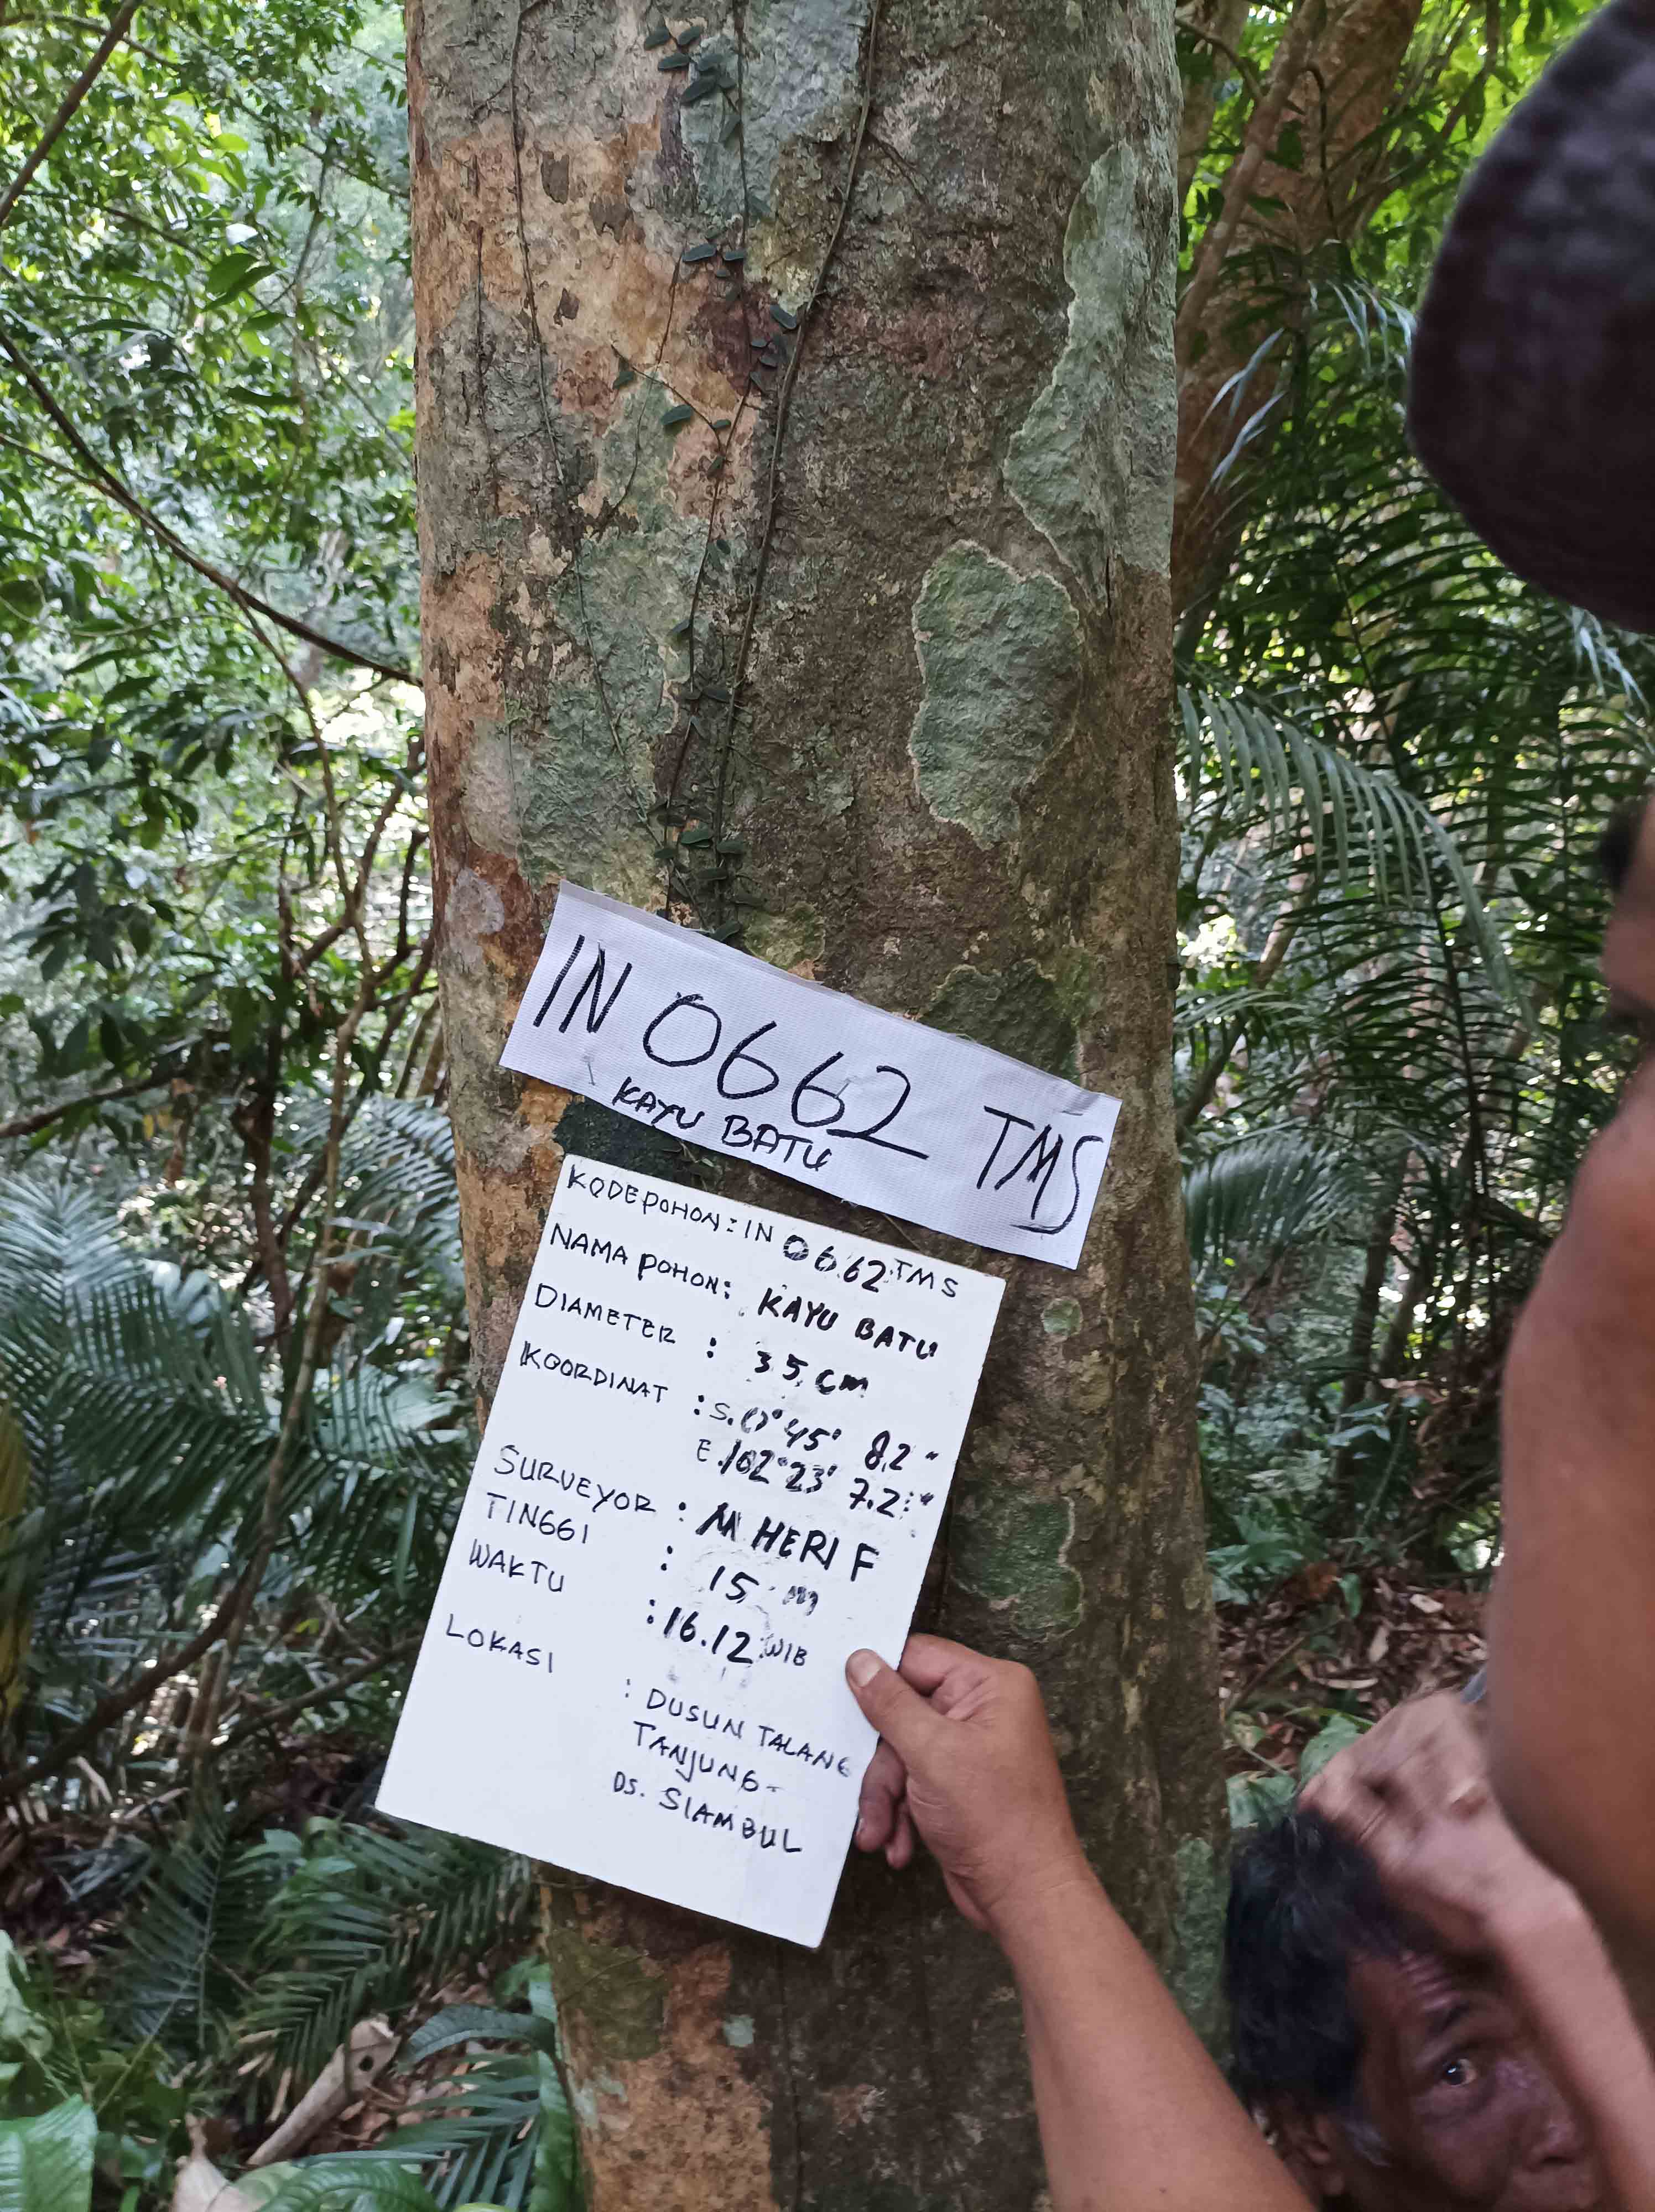 IN 0662 TMS
KAYU BATU
KODEPOHON : IN 0662 TMS
NAMA POHON : KAYU BATU
DIAMETER : 35 cm
KOORDINAT : S. 0° 45' 8,2"
E. 102° 23' 7.2"
SURVEYOR : M HERI F
TINGGI : 15 m
WAKTU : 16.12 WIB
LOKASI : DUSUN TALANG
TANJUNG -
DS. SIAMBUL